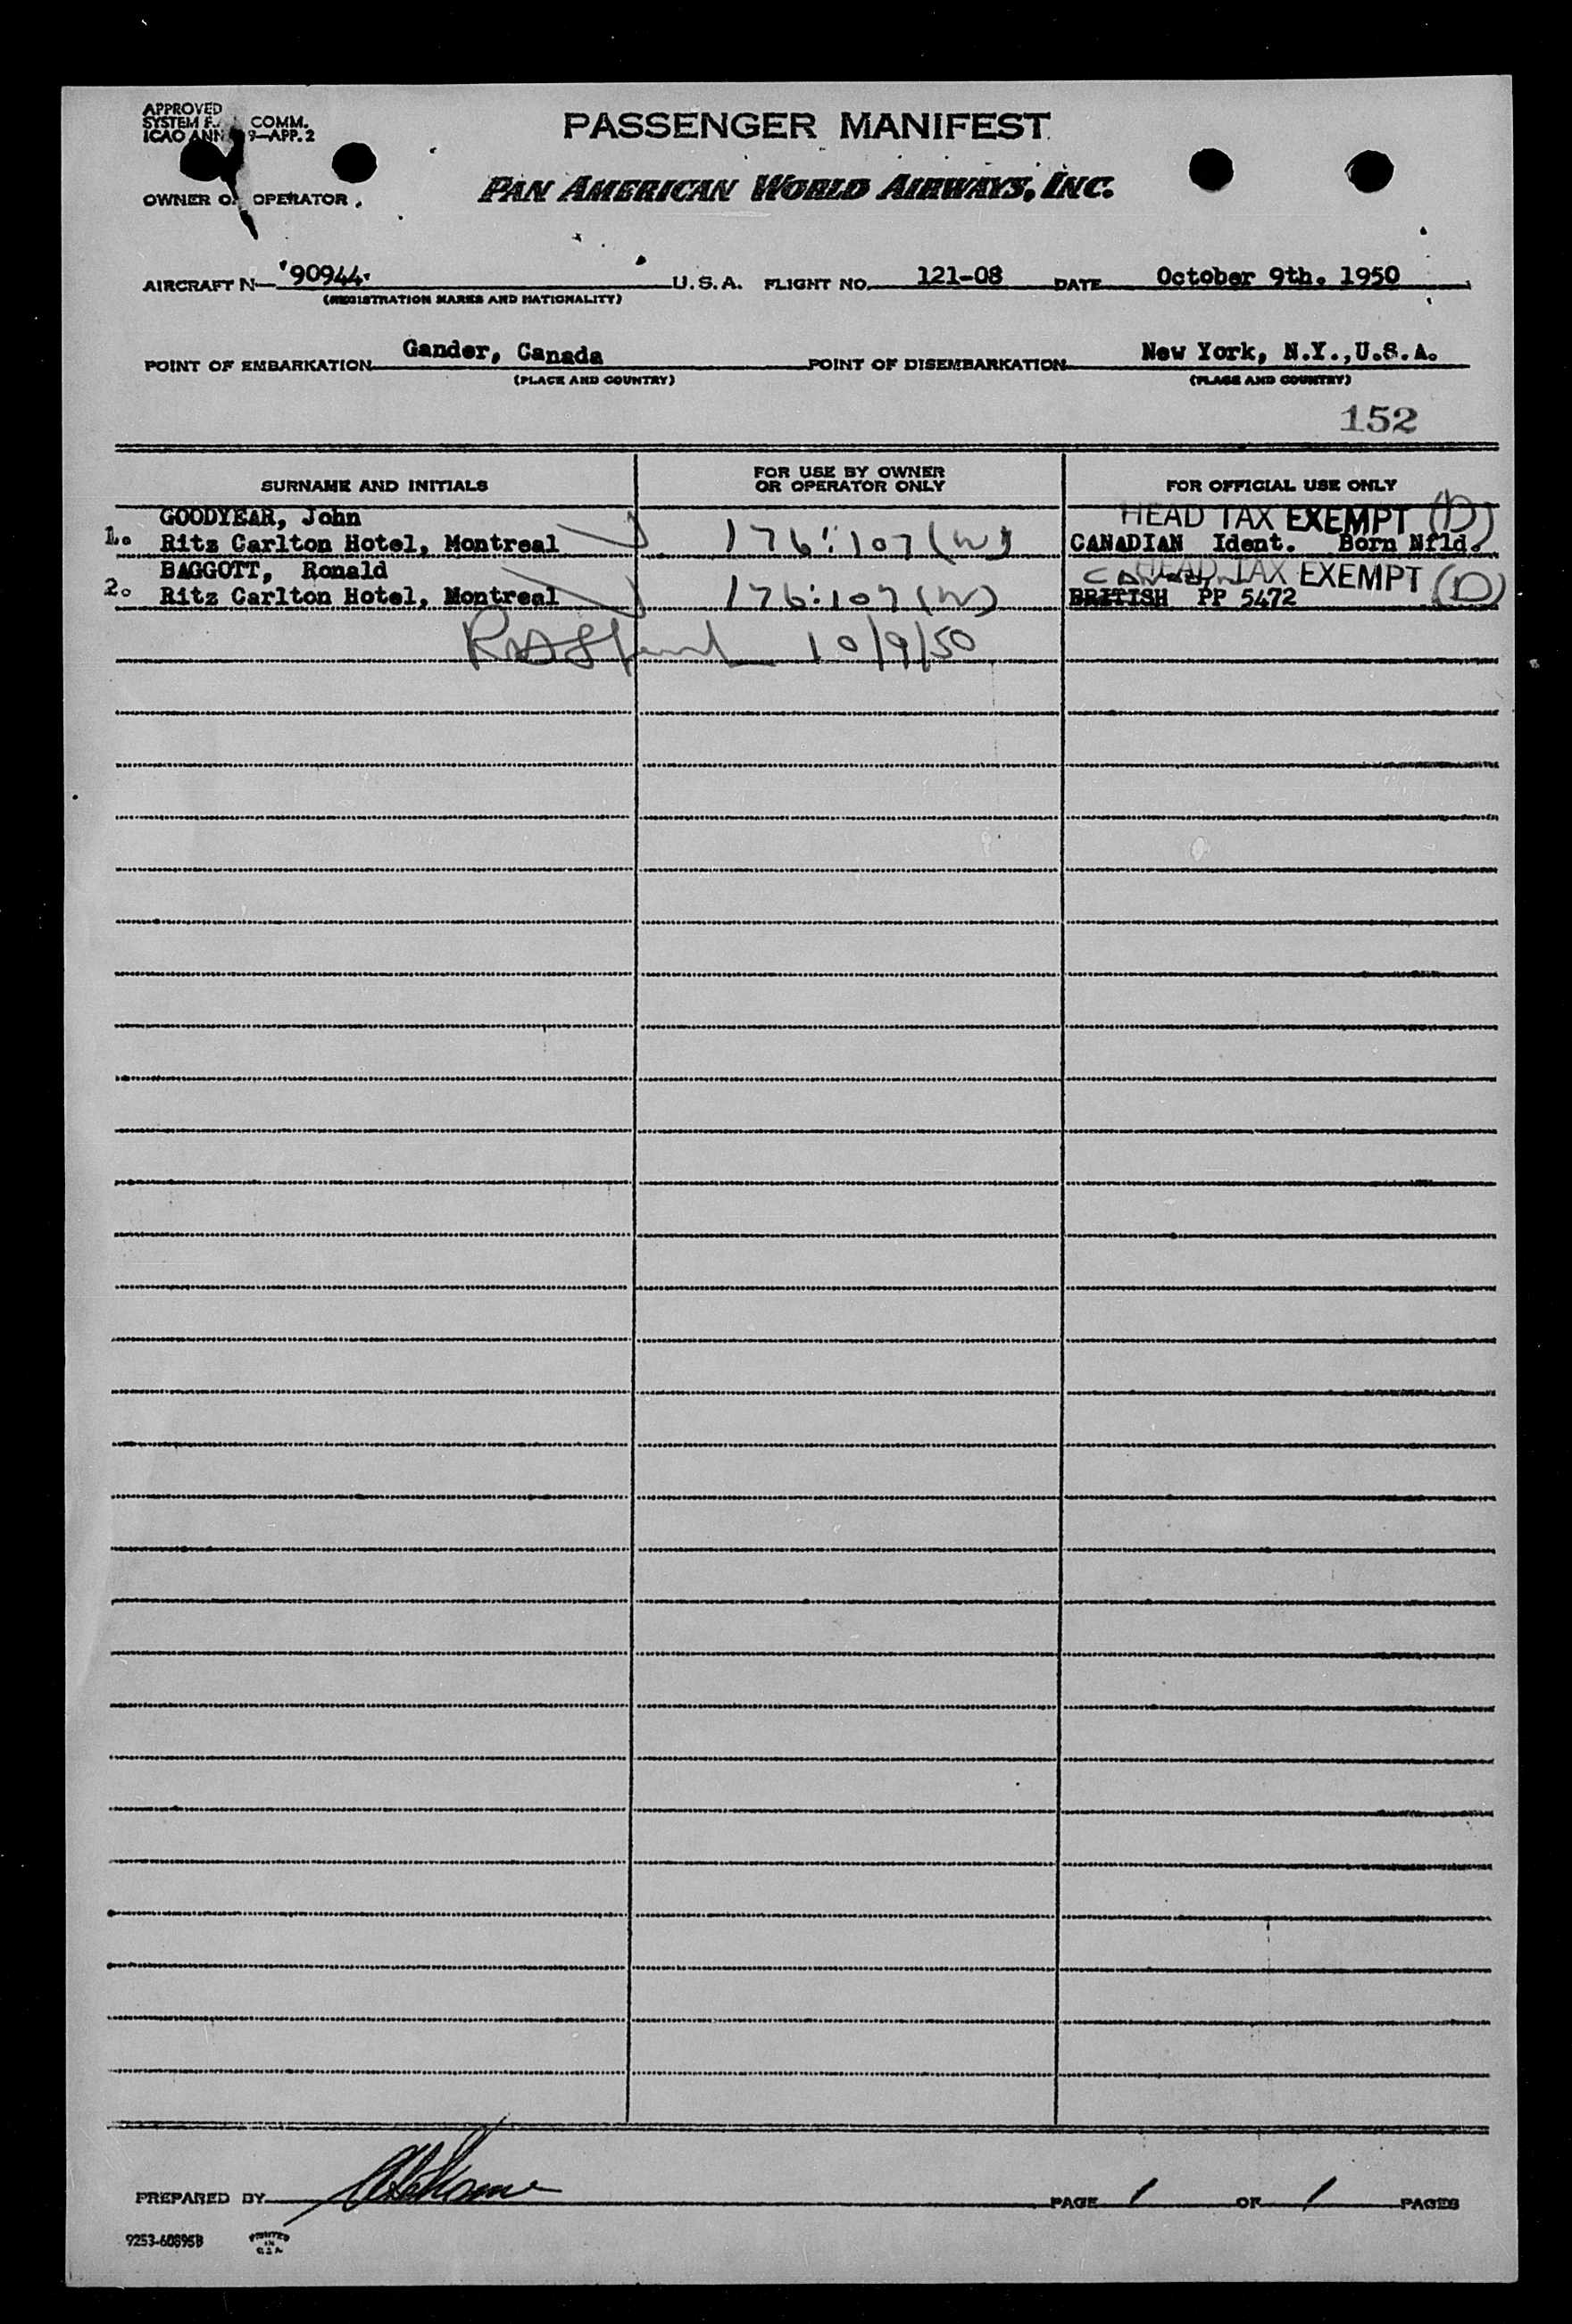 APPROVED
SYSTEM COMM.
ICAO ANN 9-APP. 2
PASSENGER MANIFEST
OWNER OR OPERATOR
PAN AMERICAN WORLD AIRWAYS, INC.
AIRCRAFT N- 90944 U.S.A. FLIGHT NO. 121-08 DATE October 9th. 1950
(REGISTRATION MARKS AND NATIONALITY)
POINT OF EMBARKATION Gander, Canada POINT OF DISEMBARKATION New York, N.Y.,U.S.A.
(PLACE AND COUNTRY) (PLACE AND COUNTRY)
152
SURNAME AND INITIALS
FOR USE BY OWNER
OR OPERATOR ONLY
FOR OFFICIAL USE ONLY
GOODYEAR, John HEAD TAX EXEMPT (D)
1. Ritz Carlton Hotel, Montreal 176:107 (W) CANADIAN Ident. Born Nfld.
BAGGOTT, Ronald Canadian HEAD TAX EXEMPT (D)
2. Ritz Carlton Hotel, Montreal 176:107 (W) BRITISH PP 5472
10/9/50
PREPARED BY PAGE 1 OF 1 PAGES
9253-60895B
PRINTED
IN
U.S.A.